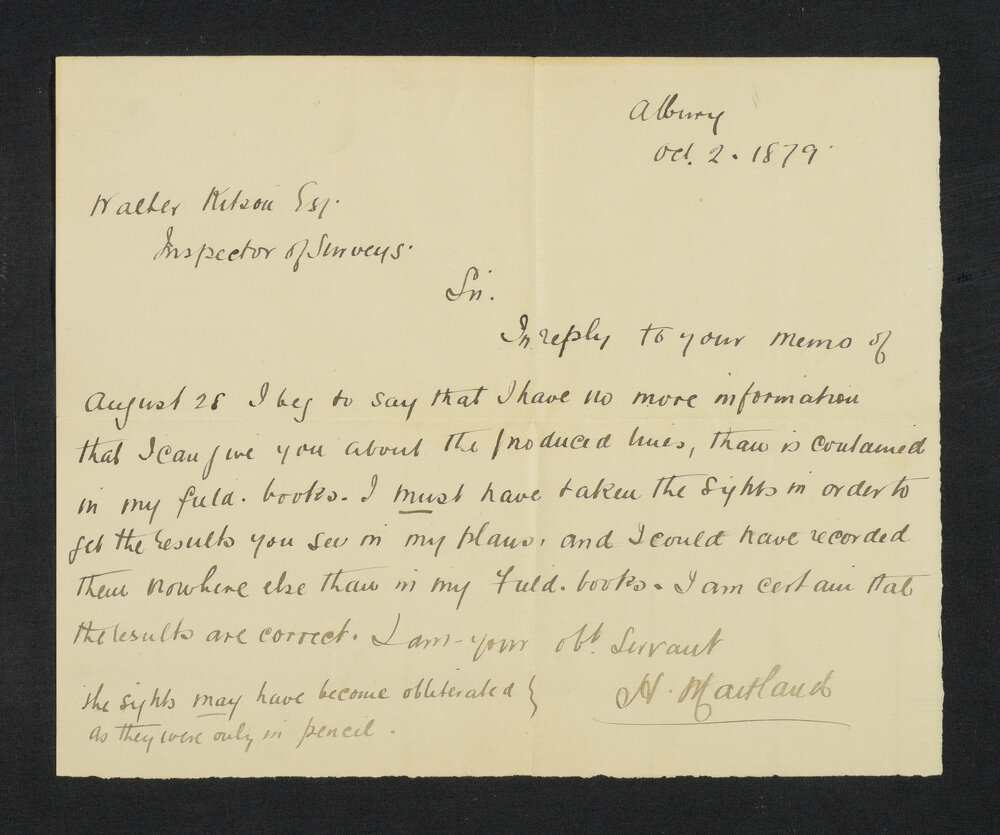 Albury
Oct. 2. 1879.
Walter Kitson Esq.
Inspector of Surveys.
Sir.
In reply to your memo of
August 28 I beg to say that I have no more information
that I can give you about the produced lines, than is contained
in my field. books. I must have taken the sights in order to
get the results you see in my plans, and I could have recorded
them nowhere else than in my Field. books. I am certain that
the results are correct. I am your obt. Servant
the sights may have become obliterated }
as they were only in pencil.
H. Maitland